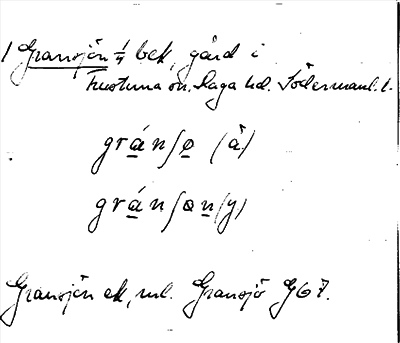 1 Gransjön 1/4 bek, gård i
Frustuna sn. Daga hd. Södermanl. l.
gránsø (å)
gránsøn (y)
Gransjön ek, ml. Gransjö G67.